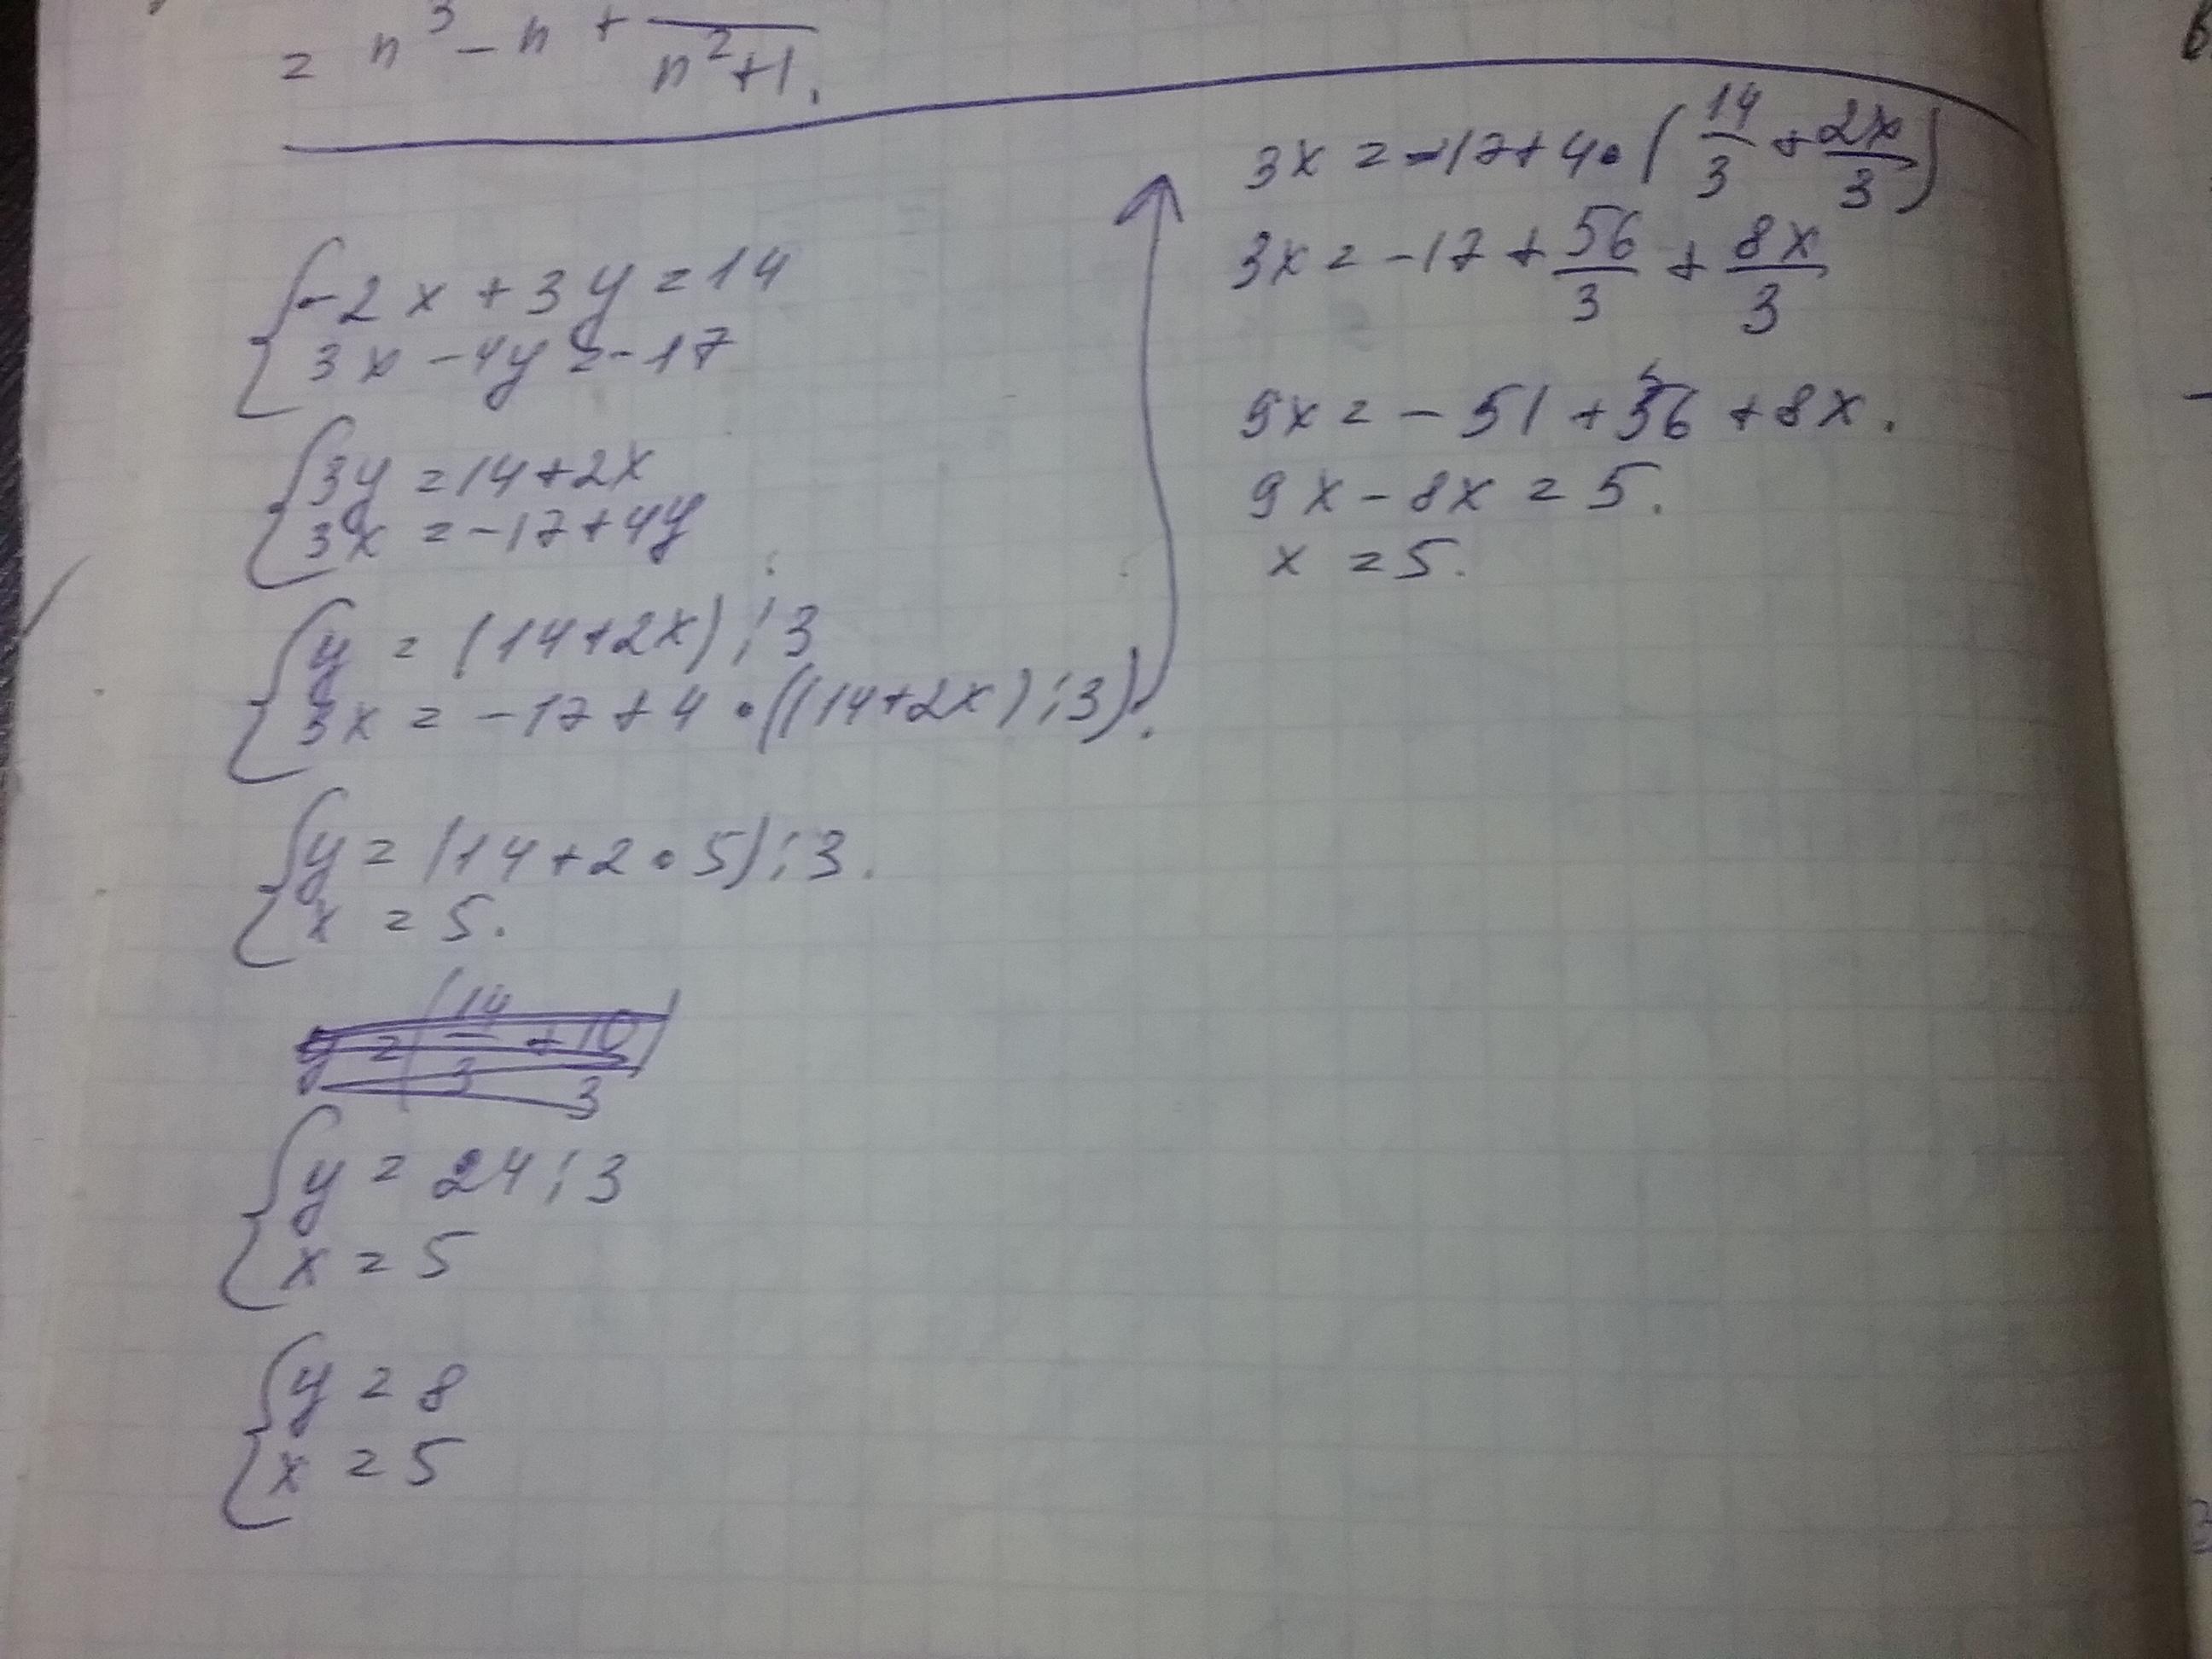 = n³ - n + —/n²+1.
{-2x + 3y = 14
3x - 4y = -17
{3y = 14 + 2x
3x = -17 + 4y
{y = (14+2x) : 3
3x = -17 + 4 • ((14+2x) : 3).
{y = (14 + 2 • 5) : 3.
x = 5.
y = (14/3 + 10/3)
{y = 24 : 3
x = 5
{y = 8
x = 5
3x = -17 + 4 • (14/3 + 2x/3)
3x = -17 + 56/3 + 8x/3
9x = -51 + 56 + 8x.
9x - 8x = 5.
x = 5.